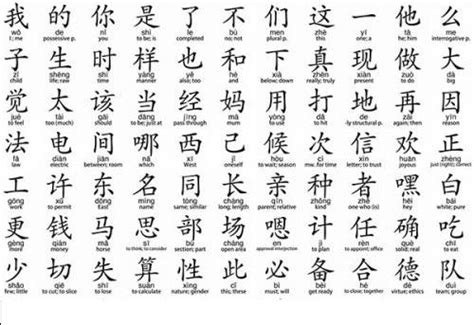 我 的 你 是 了 不 们 这 一 他 么
wǒ de nǐ shì le bù men zhè yī tā me
I; me possessive p. you is completed no; not plural p. this one; a he; him interrogative p.
子 生 时 样 也 和 下 真 现 做 大
zǐ shēng shí yàng yě hé xià zhēn xiàn zuò dà
child life; raw time manner also; too and below; down really; truly present to do big
觉 太 该 当 经 妈 用 打 地 再 因
jué tài gāi dāng jīng mā yòng dǎ de zài yīn
to feel too (much) should to be; just at pass through mum to use to hit -ly structural p. again; then reason
法 电 间 哪 西 己 候 次 信 欢 正
fǎ diàn jiān nǎ xī jǐ hòu cì xìn huān zhèng
law electric between; room which West oneself to wait; season mw. for time letter; to trust joyous just (right); correct
工 许 东 名 同 长 亲 种 者 嘿 白
gōng xǔ dōng míng tóng cháng qīn zhǒng zhě hēi bái
work to permit East name same long; length parent; relative kind one who (is) hey white; pure
更 钱 马 思 部 场 嗯 计 应 实 吃
gèng qián mǎ sī bù chǎng en jì yìng shí chī
more money horse to think; to consider section; part open area approval interjection to plan to answer solid; real to eat
少 切 失 算 性 此 必 备 合 德 队
shǎo qiē shī suàn xìng cǐ bì bèi hé dé duì
few; little to cut; to slice to lose to calculate nature; gender this; these must; will get ready to close; together virtue; ethics team